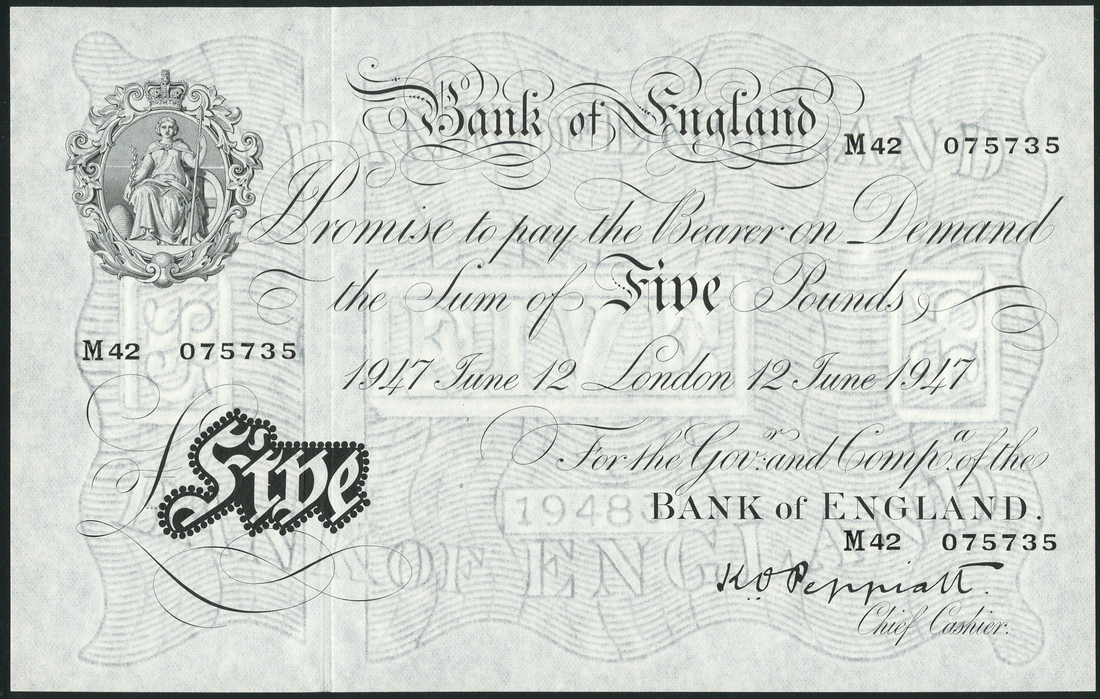 Bank of England
M42 075735
I Promise to pay the Bearer on Demand
the Sum of Five Pounds
M42 075735
1947 June 12 London 12 June 1947
£Five
For the Gov.r and Comp.a of the
BANK of ENGLAND.
M42 075735
K O Peppiatt.
Chief Cashier.
BANK OF ENGLAND
FIVE
1948
BANK OF ENGLAND